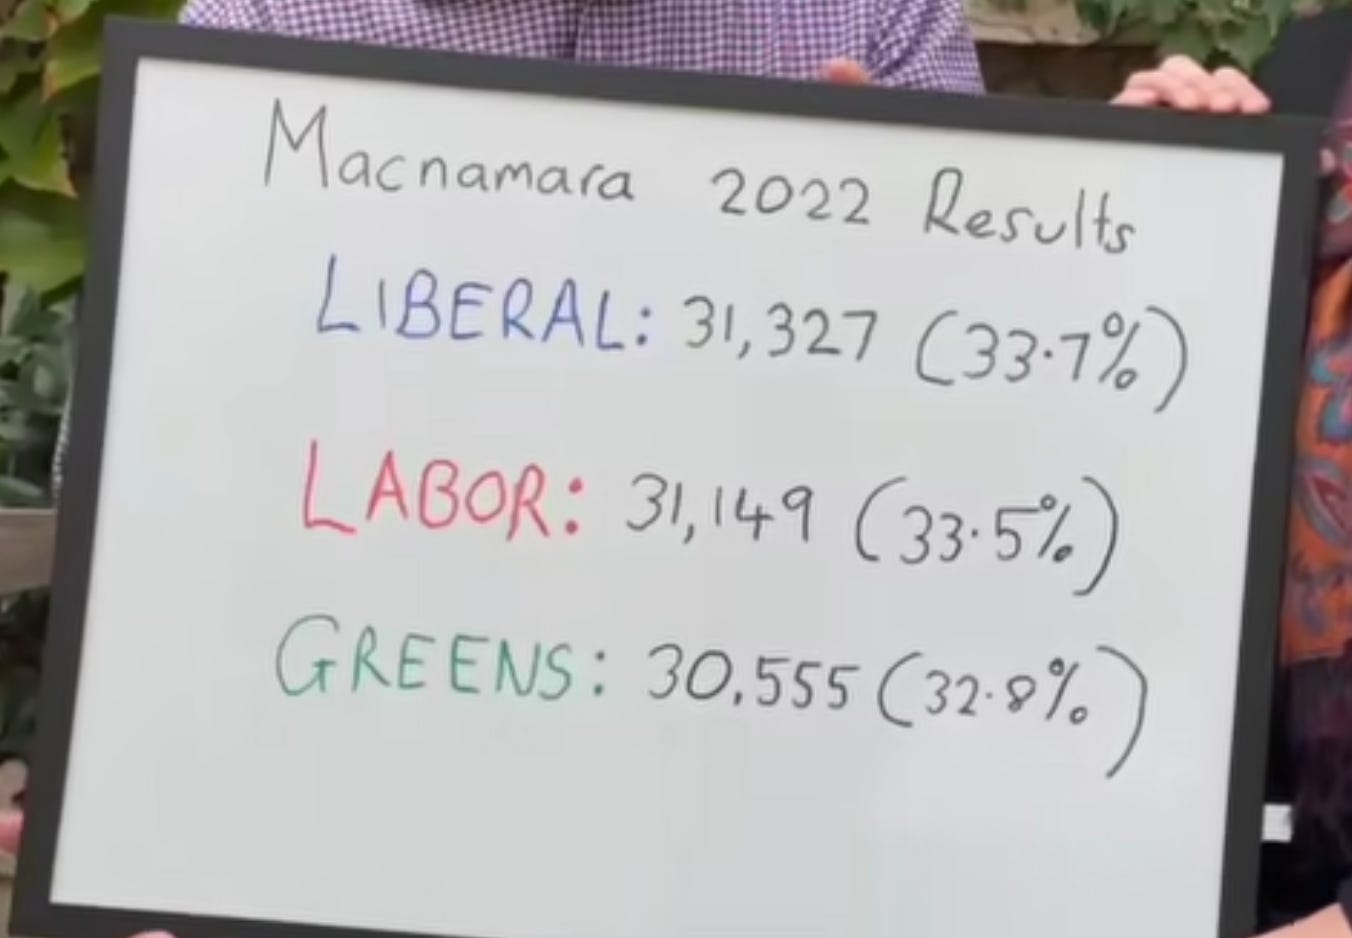 Macnamara 2022 Results
LIBERAL: 31,327 (33.7%)
LABOR: 31,149 (33.5%)
GREENS: 30,555 (32.8%)